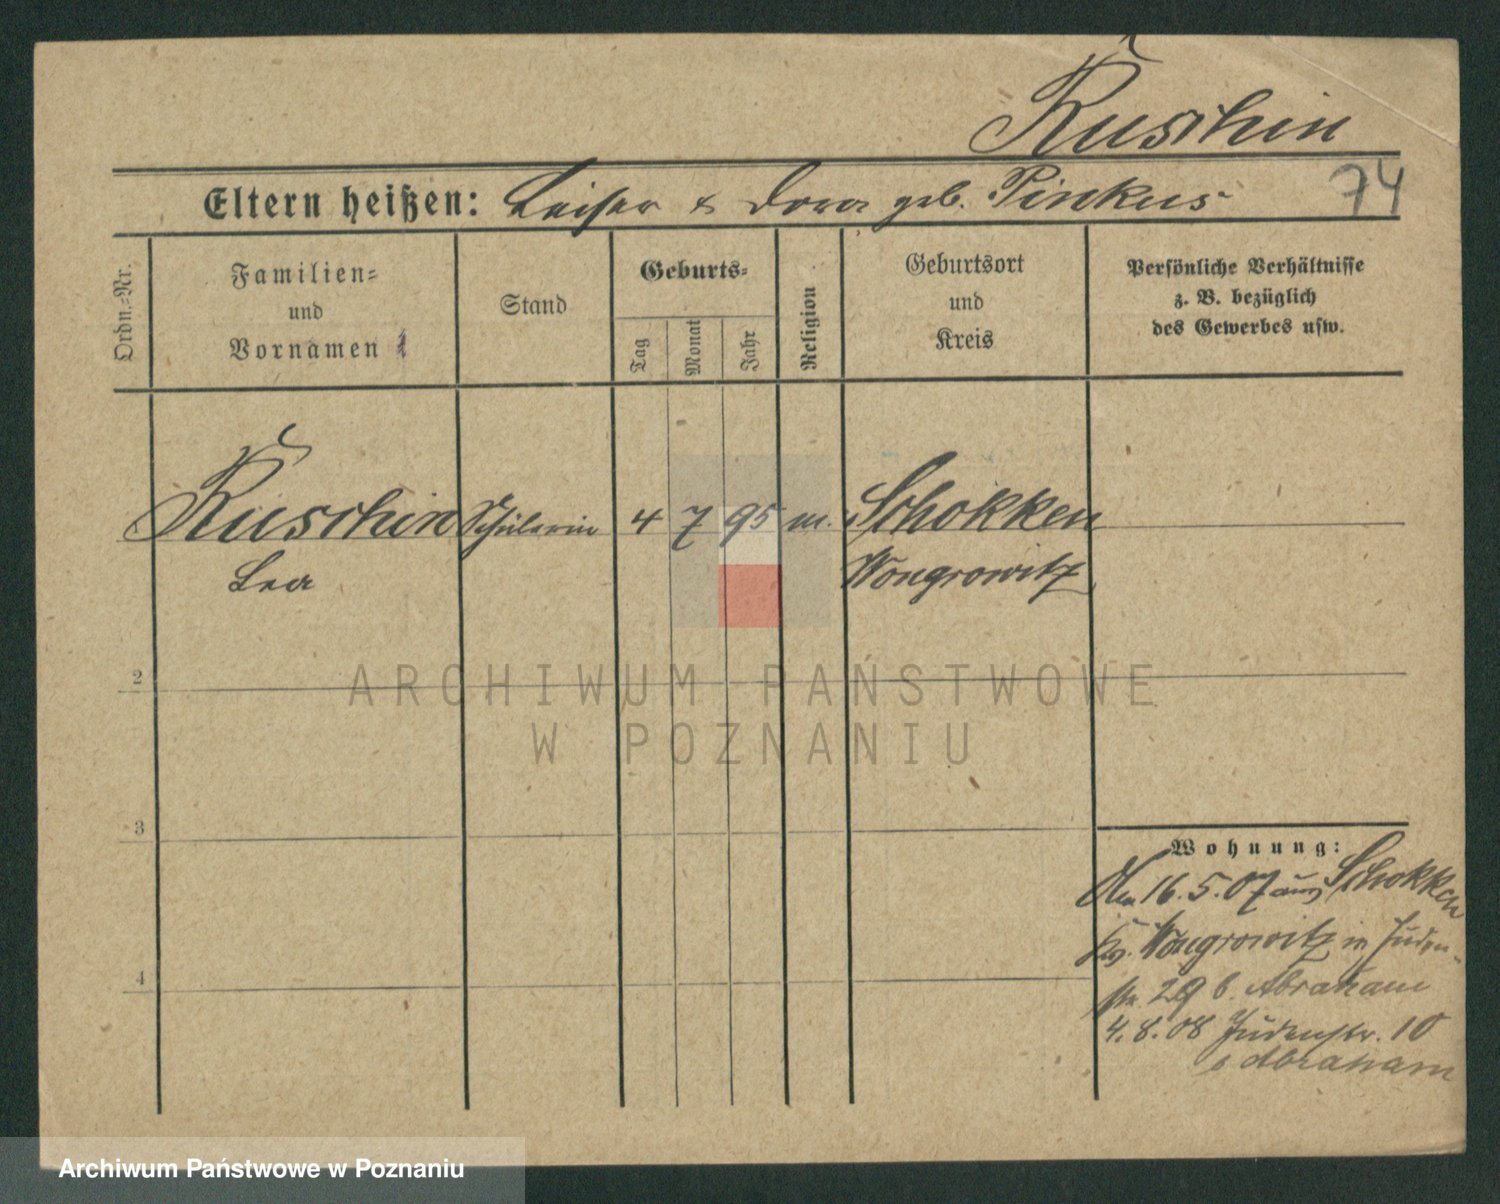 Ruschin
Eltern heißen: Leiser & Dora geb. Pinkus
74
Ordn.-Nr.
Familien-
und
Vornamen
Stand
Geburts-
Tag
Monat
Jahr
Religion
Geburtsort
und
Kreis
Persönliche Verhältnisse
z. B. bezüglich
des Gewerbes usw.
1
Ruschin Schülerin 4 7 95 m. Schokken
Lea Wongrowitz
2
3
4
Wohnung:
Am 16.5.07 aus Schokken
Kr. Wongrowitz in Juden-
str. 29 b. Abraham
4.8.08 Judenstr. 10
b Abraham
ARCHIWUM PAŃSTWOWE
W POZNANIU
Archiwum Państwowe w Poznaniu